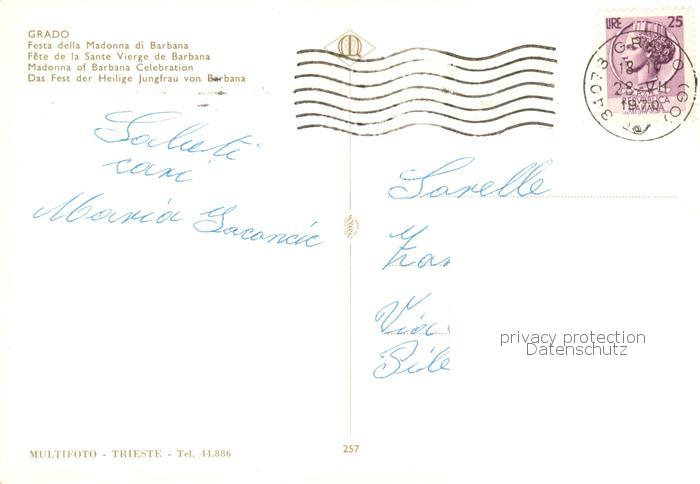 GRADO
Festa della Madonna di Barbana
Fête de la Sante Vierge de Barbana
Madonna of Barbana Celebration
Das Fest der Heilige Jungfrau von Barbana
LIRE 25
34073 GRADO (GO)
18
28.VII
1970
Saluti
cari
Maria
Sorelle
Via
privacy protection
Datenschutz
MULTIFOTO - TRIESTE - Tel. 44.886
257